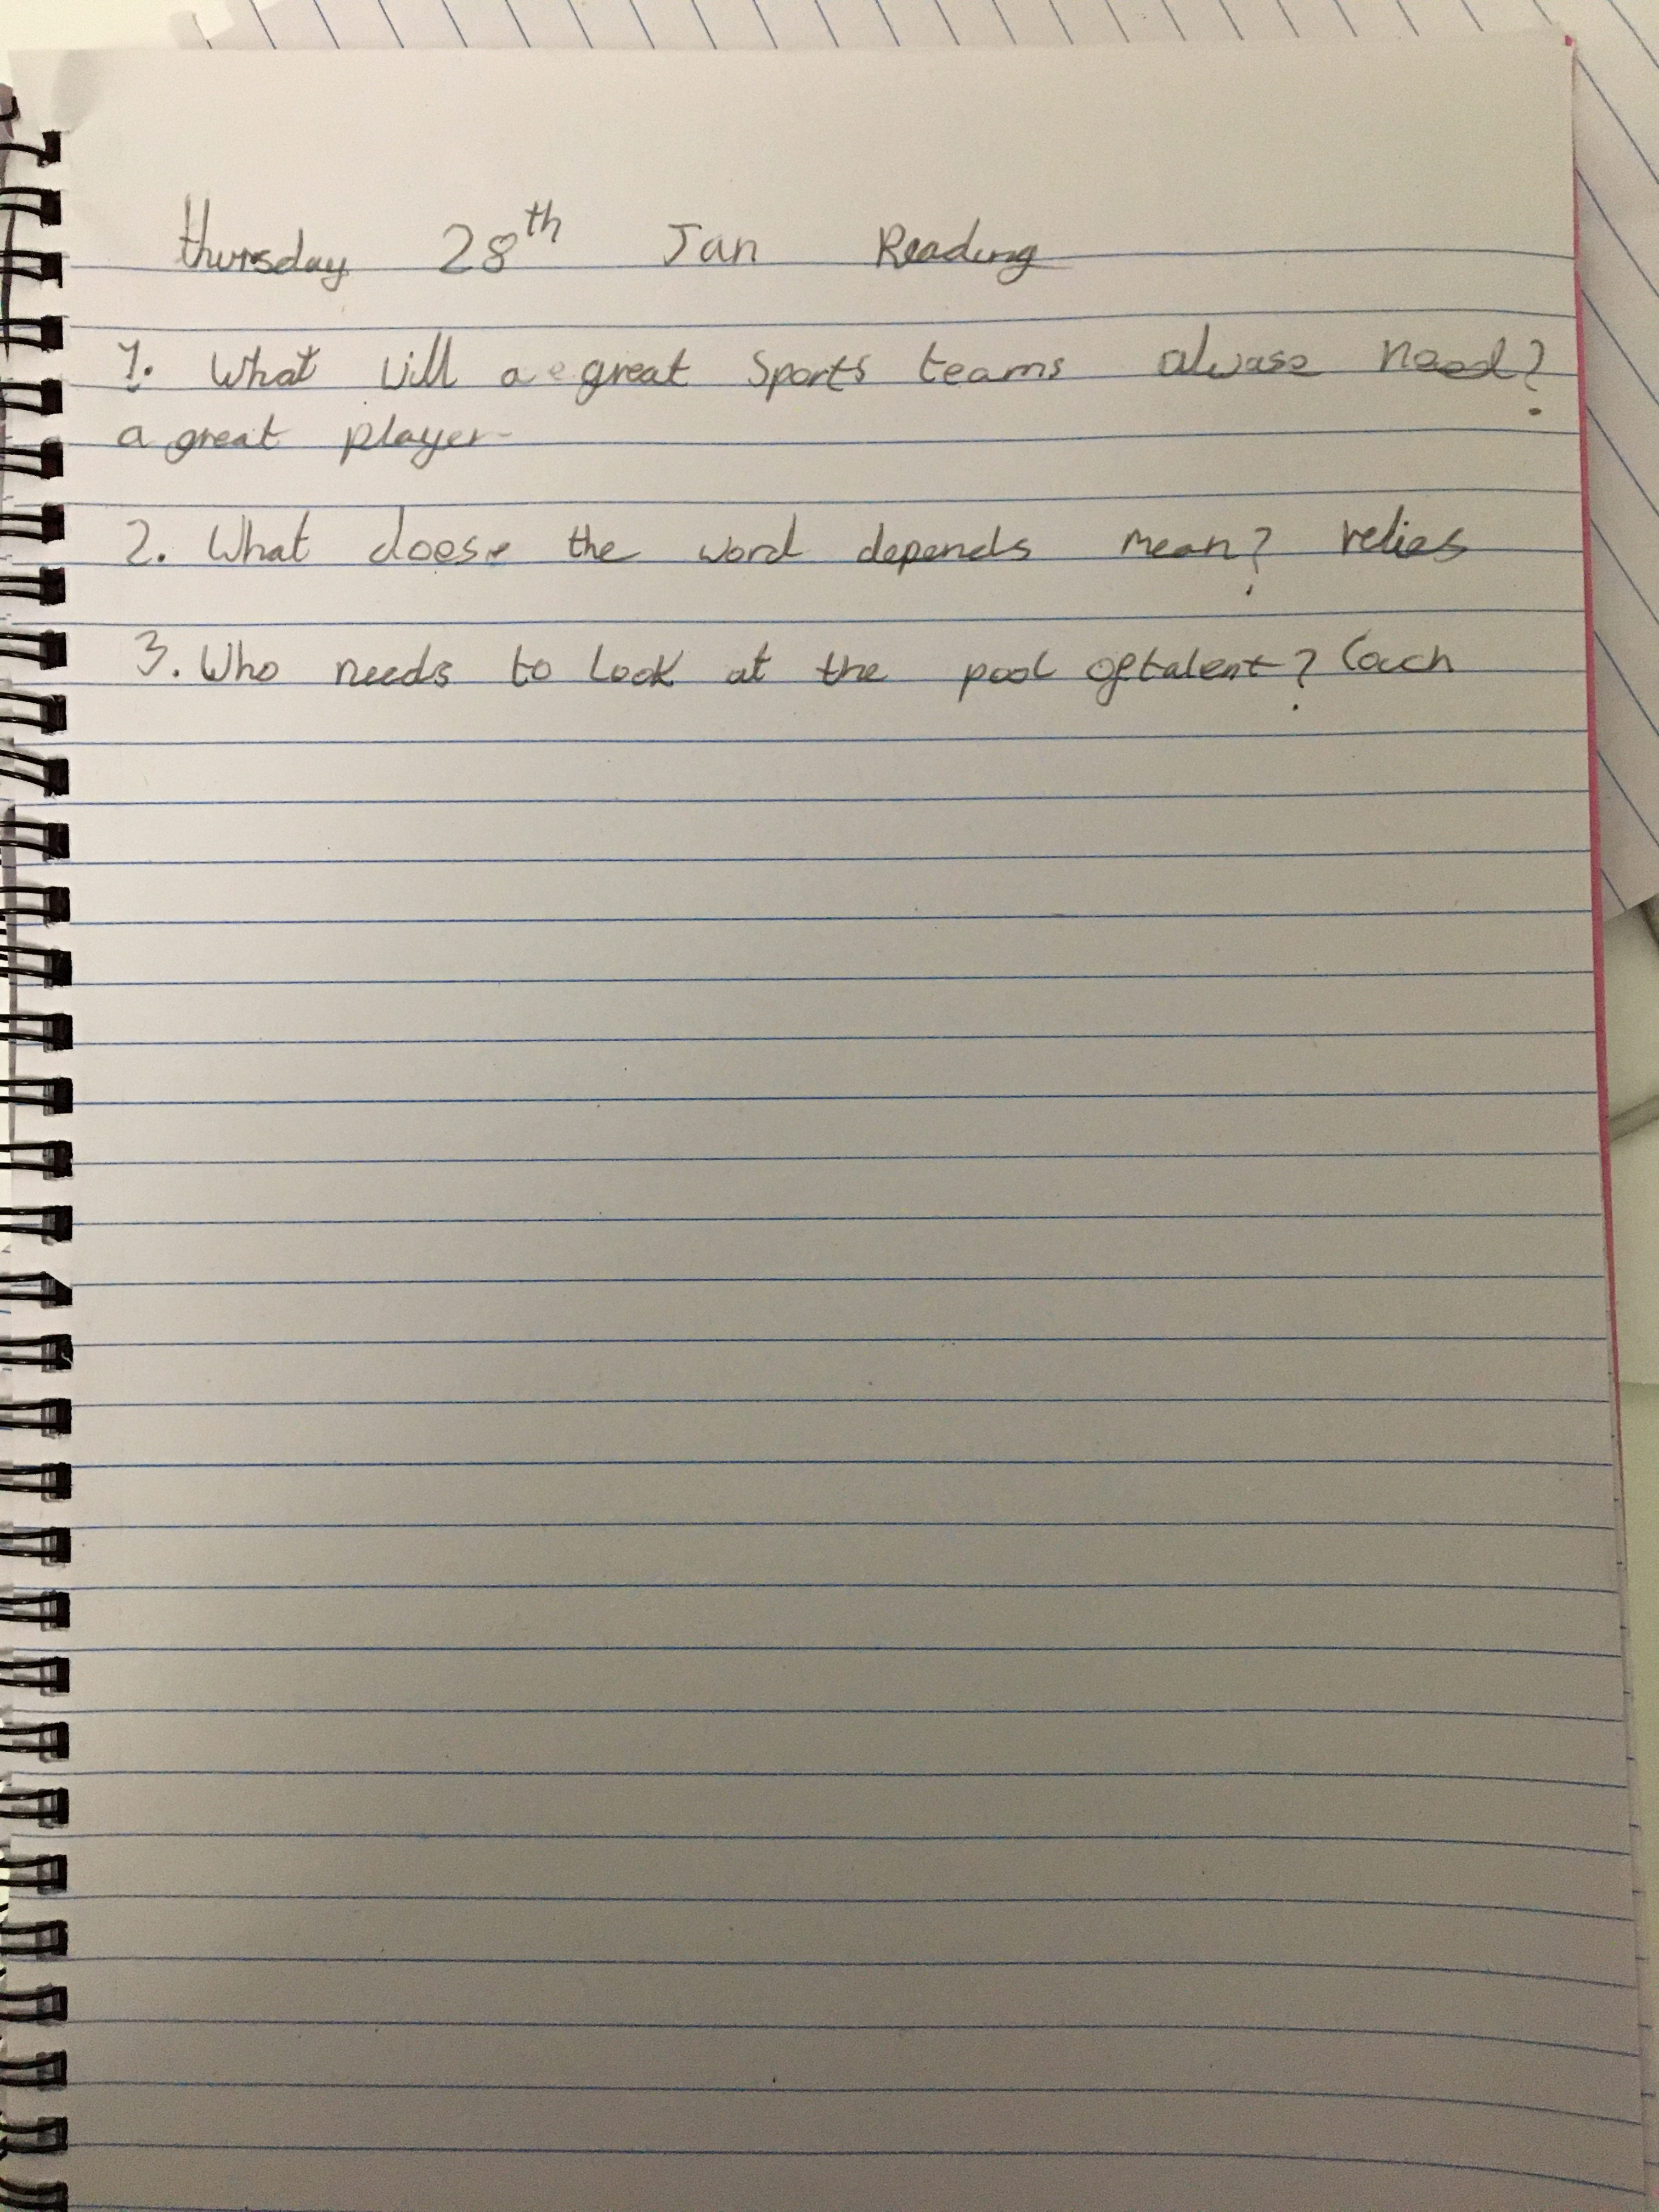 thursday 28th Jan Reading
1. What will a great Sports teams alwase need?
a great player
2. What doese the word depends mean? relies
3. Who needs to look at the pool of talent? Coach